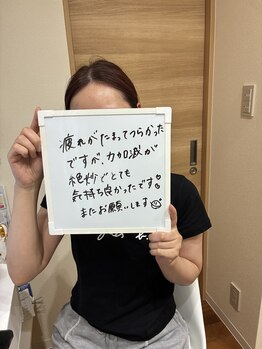 疲れがたまってつらかった
ですが、力加減が
絶妙でとても
気持ち良かったです!
またお願いします